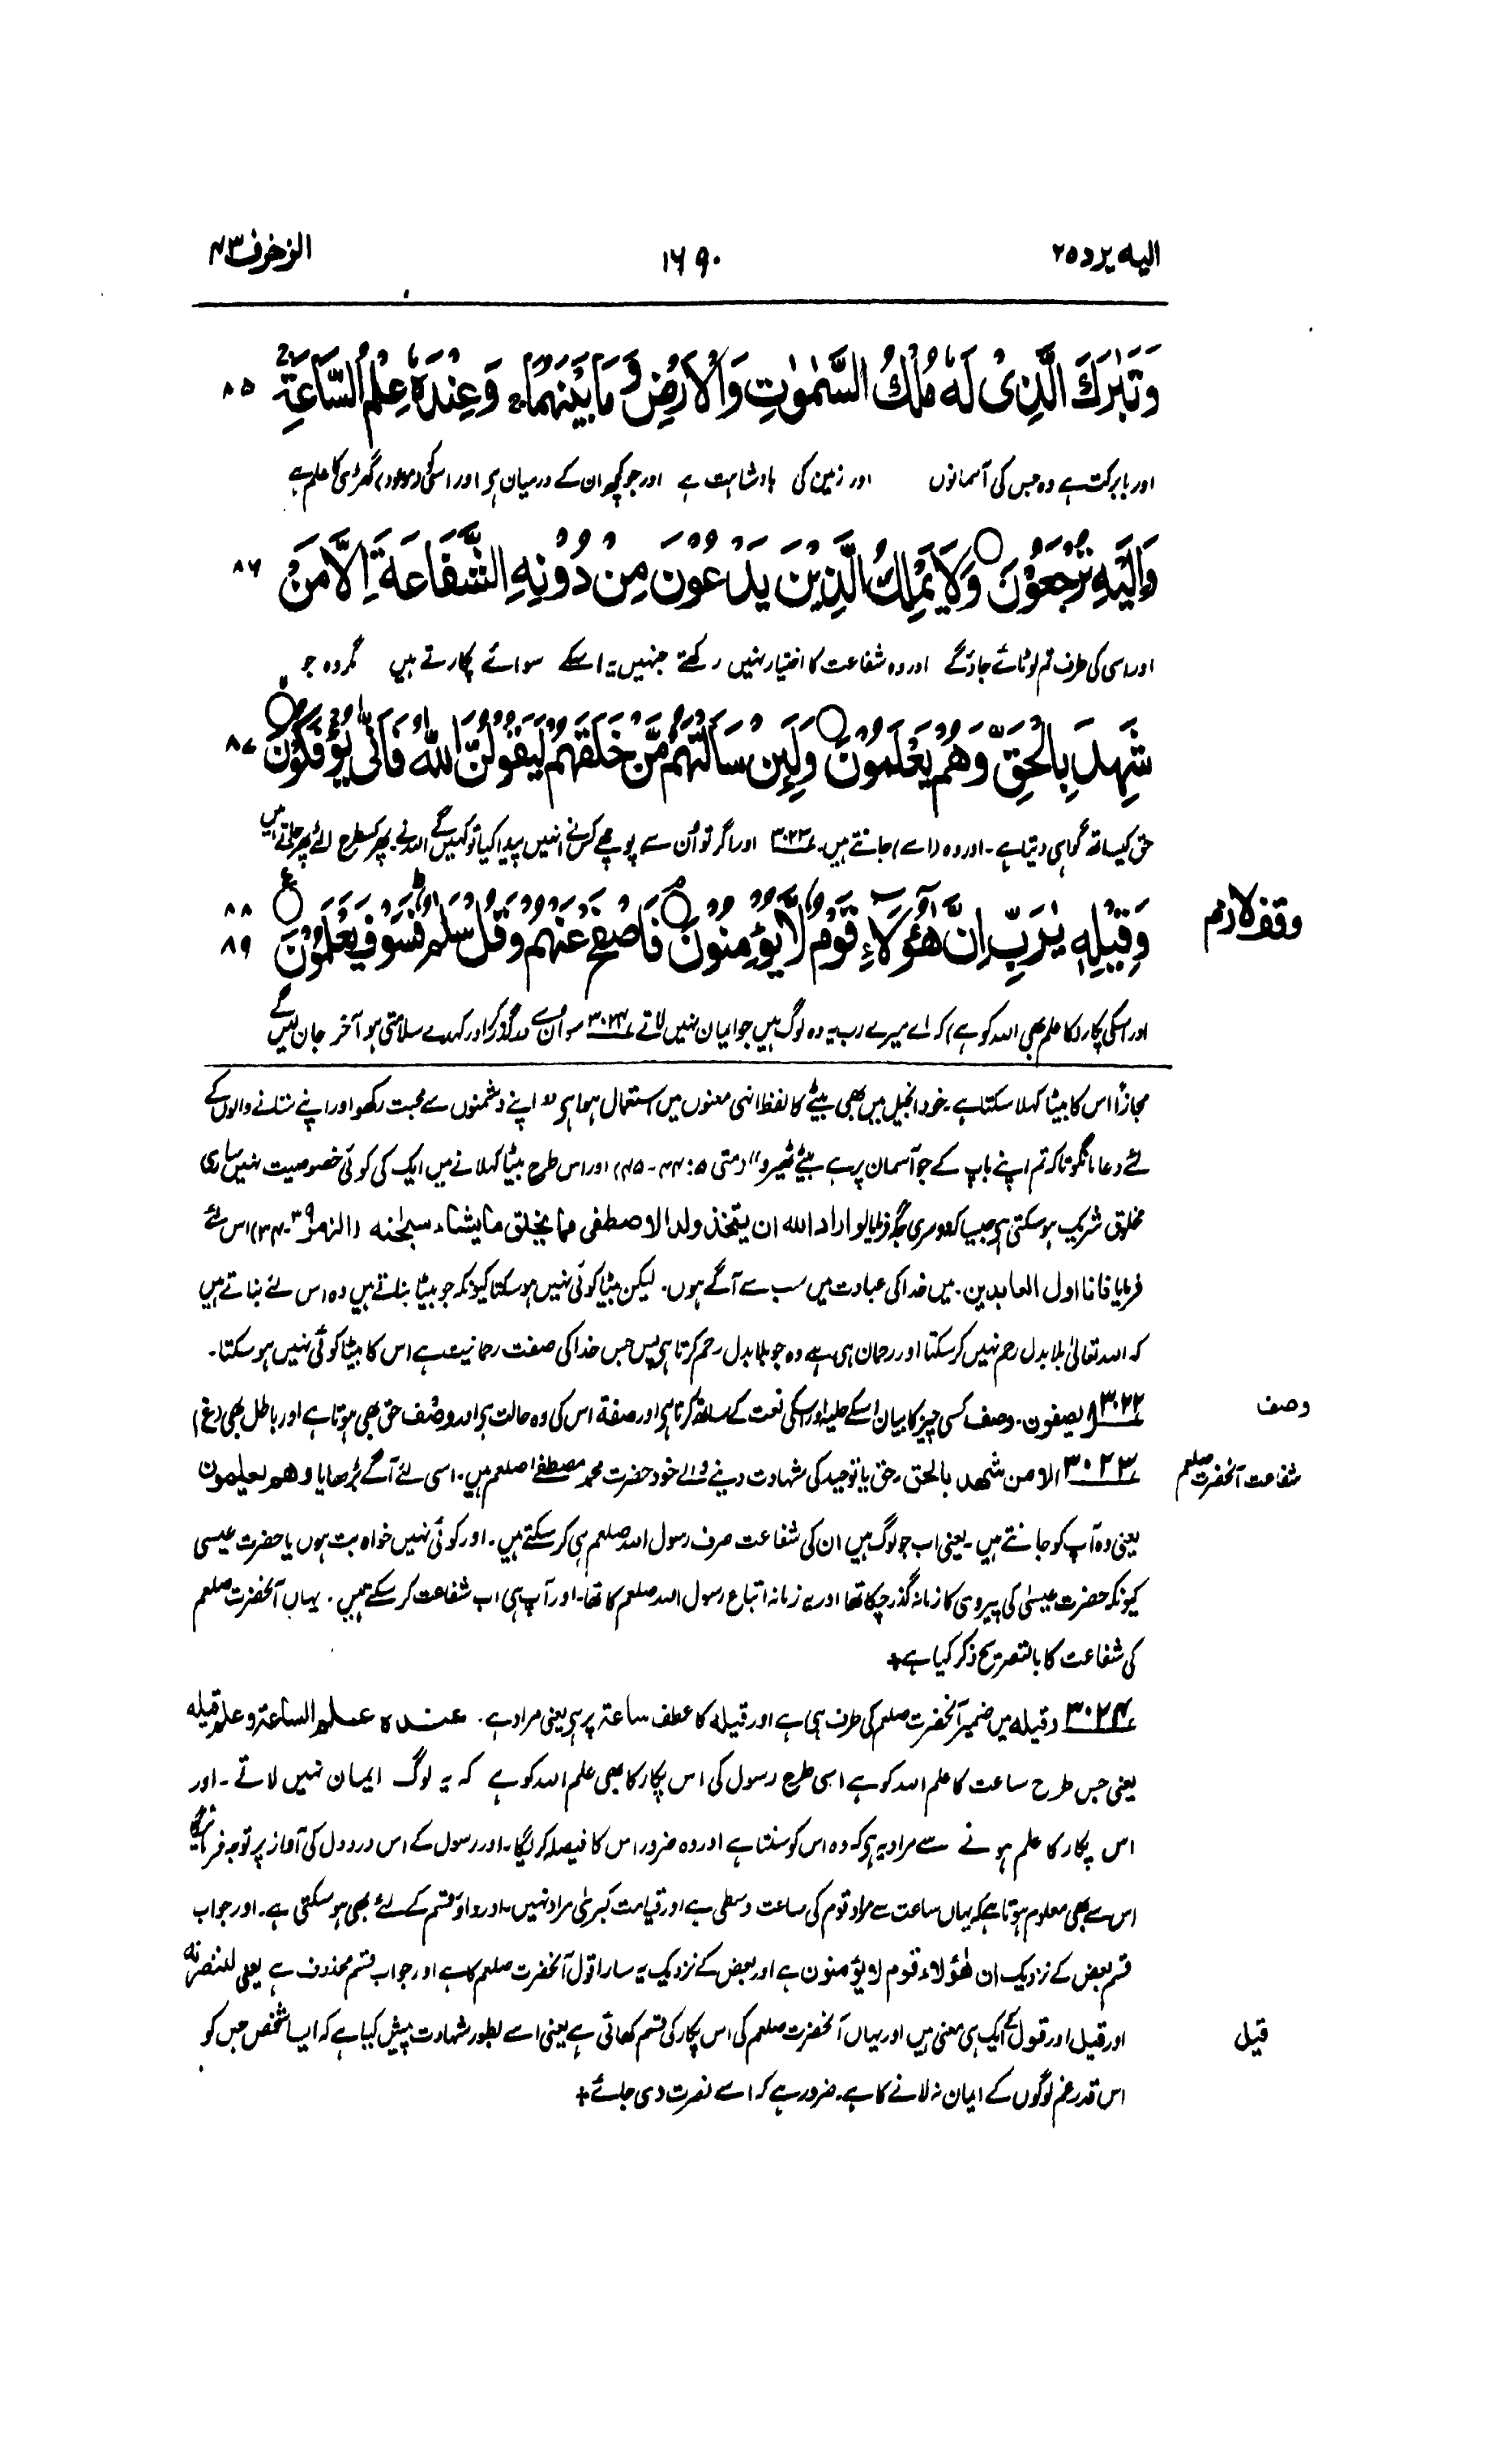 الیہ یرد ۲۵
۱۶۹۰
الزخرف ۴۳
وَتَبٰرَكَ الَّذِیْ لَهٗ مُلْكُ السَّمٰوٰتِ وَالْاَرْضِ وَمَا بَیْنَهُمَا ۚ وَعِنْدَهٗ عِلْمُ السَّاعَةِ ۚ ۸۵
اور بابرکت ہے وہ جس کی آسمانوں اور زمین کی بادشاہت ہے اور جو کچھ ان کے درمیان ہی اور اسکی (موعود) گھڑی کا علم ہے
وَاِلَیْهِ تُرْجَعُوْنَ ○ وَلَا یَمْلِكُ الَّذِیْنَ یَدْعُوْنَ مِنْ دُوْنِهِ الشَّفَاعَةَ اِلَّا مَنْ ۸۶
اور اسی کی طرف تم لوٹائے جاؤگے اور وہ شفاعت کا اختیار نہیں رکھتے جنہیں یہ اسکے سوائے پکارتے ہیں مگر وہ جو
شَهِدَ بِالْحَقِّ وَهُمْ یَعْلَمُوْنَ ○ وَلَئِنْ سَاَلْتَهُمْ مَّنْ خَلَقَهُمْ لَیَقُوْلُنَّ اللّٰهُ فَاَنّٰی یُؤْفَكُوْنَ ○ ۸۷
حق کیساتھ گواہی دیتا ہے۔ اور وہ (اسے) جانتے ہیں۔ ۳۰۲۳ اور اگر تو اُن سے پوچھے کس نے انہیں پیدا کیا تو کہیں گے اللہ نے۔ پھر کسطرح الٹے پھر جاتے ہیں
وقف لازم
وَقِیْلِهٖ یٰرَبِّ اِنَّ هٰۤؤُلَآءِ قَوْمٌ لَّا یُؤْمِنُوْنَ ○ فَاصْفَحْ عَنْهُمْ وَقُلْ سَلٰمٌ ؕ فَسَوْفَ یَعْلَمُوْنَ ○ ۸۸ ۸۹
اور اسکی پکار (کا علم بھی اللہ کو ہے) کہ اے میرے رب یہ وہ لوگ ہیں جو ایمان نہیں لاتے ۳۰۲۴ سو اُن سے درگذر کر اور کہدے سلامتی ہو آخر جان لیں گے
مجازاً اس کا بیٹا کہلا سکتا ہے۔ خود انجیل میں بھی بیٹے کا لفظ انہی معنوں میں استعمال ہوا ہی "اپنے دشمنوں سے محبت رکھو اور اپنے ستانے والوں کے
لئے دعا مانگو تاکہ تم اپنے باپ کے جو آسمان پر ہے بیٹے ٹھیرو" (متی ۵: ۴۴-۴۵) اور اس طرح بیٹا کہلانے میں ایک کی کوئی خصوصیت نہیں ساری
مخلوق شریک ہوسکتی ہی جیسا کہ دوسری جگہ فرمایا لو اراد الله ان یتخذ ولدا لاصطفی مما یخلق ما یشاء سبحٰنه (الزمر ۳۹-۴) اس لئے
فرمایا فانا اول العابدین۔ میں خدا کی عبادت میں سب سے آگے ہوں۔ لیکن بیٹا کوئی نہیں ہوسکتا کیونکہ جو بیٹا بناتے ہیں وہ اس لئے بناتے ہیں
کہ اللہ تعالیٰ بلا بدل رحم نہیں کرسکتا اور رحمان ہی ہے وہ جو بلا بدل رحم کرتا ہی پس جس خدا کی صفت رحمانیت ہے اس کا بیٹا کوئی نہیں ہوسکتا۔
وصف
۳۰۲۲ یصفون۔ وصف کسی چیز کا بیان اسکے حلیہ اور اسکی نعت کے ساتھ کرنا ہی اور صفة اس کی وہ حالت ہی اور وصف حق بھی ہوتا ہے اور باطل بھی (غ)
شفاعت آنحضرت صلعم
۳۰۲۳ الا من شهد بالحق۔ حق یا توحید کی شہادت دینے والے خود حضرت محمد مصطفےٰ صلعم ہیں۔ اسی لئے آگے بڑھایا وهم یعلمون
یعنی وہ آپ کو جانتے ہیں۔ یعنی اب جو لوگ ہیں ان کی شفاعت صرف رسول اللہ صلعم ہی کرسکتے ہیں۔ اور کوئی نہیں خواہ بت ہوں یا حضرت عیسیٰ
کیونکہ حضرت عیسیٰ کی پیروی کا زمانہ گذر چکا تھا اور یہ زمانہ اتباع رسول اللہ صلعم کا تھا۔ اور آپ ہی اب شفاعت کرسکتے ہیں۔ یہاں آنحضرت صلعم
کی شفاعت کا بالتصریح ذکر کیا ہے +
۳۰۲۴ وقیله میں ضمیر آنحضرت صلعم کی طرف ہی ہے اور قیله کا عطف ساعة پر ہی یعنی مراد ہے۔ عنده علم الساعة وعلم قیله
یعنی جس طرح ساعت کا علم اللہ کو ہے اسی طرح رسول کی اس پکار کا بھی علم اللہ کو ہے کہ یہ لوگ ایمان نہیں لاتے۔ اور
اس پکار کا علم ہونے سے مراد یہ ہی کہ وہ اس کو سنتا ہے اور وہ ضرور اس کا فیصلہ کریگا۔ اور رسول کے اس درد دل کی آواز پر توجہ فرمائیگا
اس سے بھی معلوم ہوتا ہے کہ یہاں ساعت سے مراد قوم کی ساعت وسطی ہے اور قیامت کبریٰ مراد نہیں۔ اور واؤ قسم کے لئے بھی ہوسکتی ہے۔ اور جواب
قسم بعض کے نزدیک ان هٰؤلاء قوم لا یؤمنون ہے اور بعض کے نزدیک یہ سارا قول آنحضرت صلعم کا ہے اور جواب قسم محذوف ہے یعنی لننصرنه
قیل
اور قیل اور قول کے ایک ہی معنی ہیں اور یہاں آنحضرت صلعم کی اس پکار کی قسم کھائی ہے یعنی اسے بطور شہادت پیش کیا ہے کہ ایسا شخص جس کو
اس قدر غم لوگوں کے ایمان نہ لانے کا ہے۔ ضرور ہے کہ اسے نصرت دی جائے +